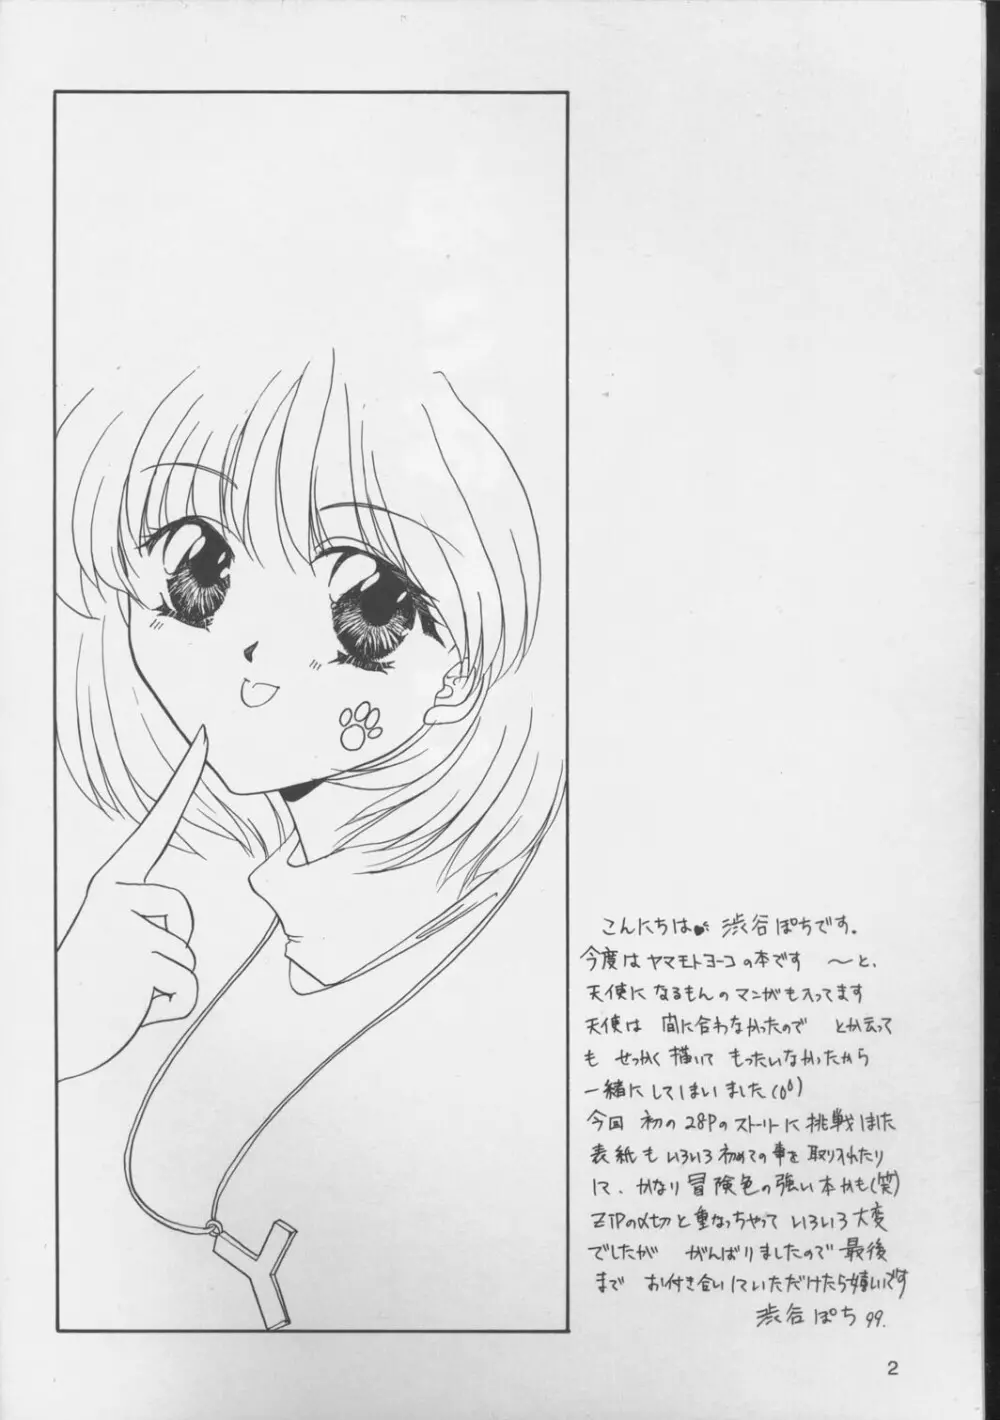 こんにちは♥ 渋谷ぽちです。
今度は ヤマモトヨーコの本です 〜と、
天使になるもんのマンガも入ってます
天使は 間に合わなかったので とか云って
も せっかく描いて もったいなかったから
一緒にしてしまいました
今回 初の28Pのストーリーに挑戦
表紙もいろいろ初めての事を取り入れたり
して、かなり冒険色の強い本かも(笑)
〆切と重なっちゃって いろいろ大変
でしたが がんばりましたので最後
まで お付き合いしていただけたら嬉しいです
渋谷ぽち 99.
2